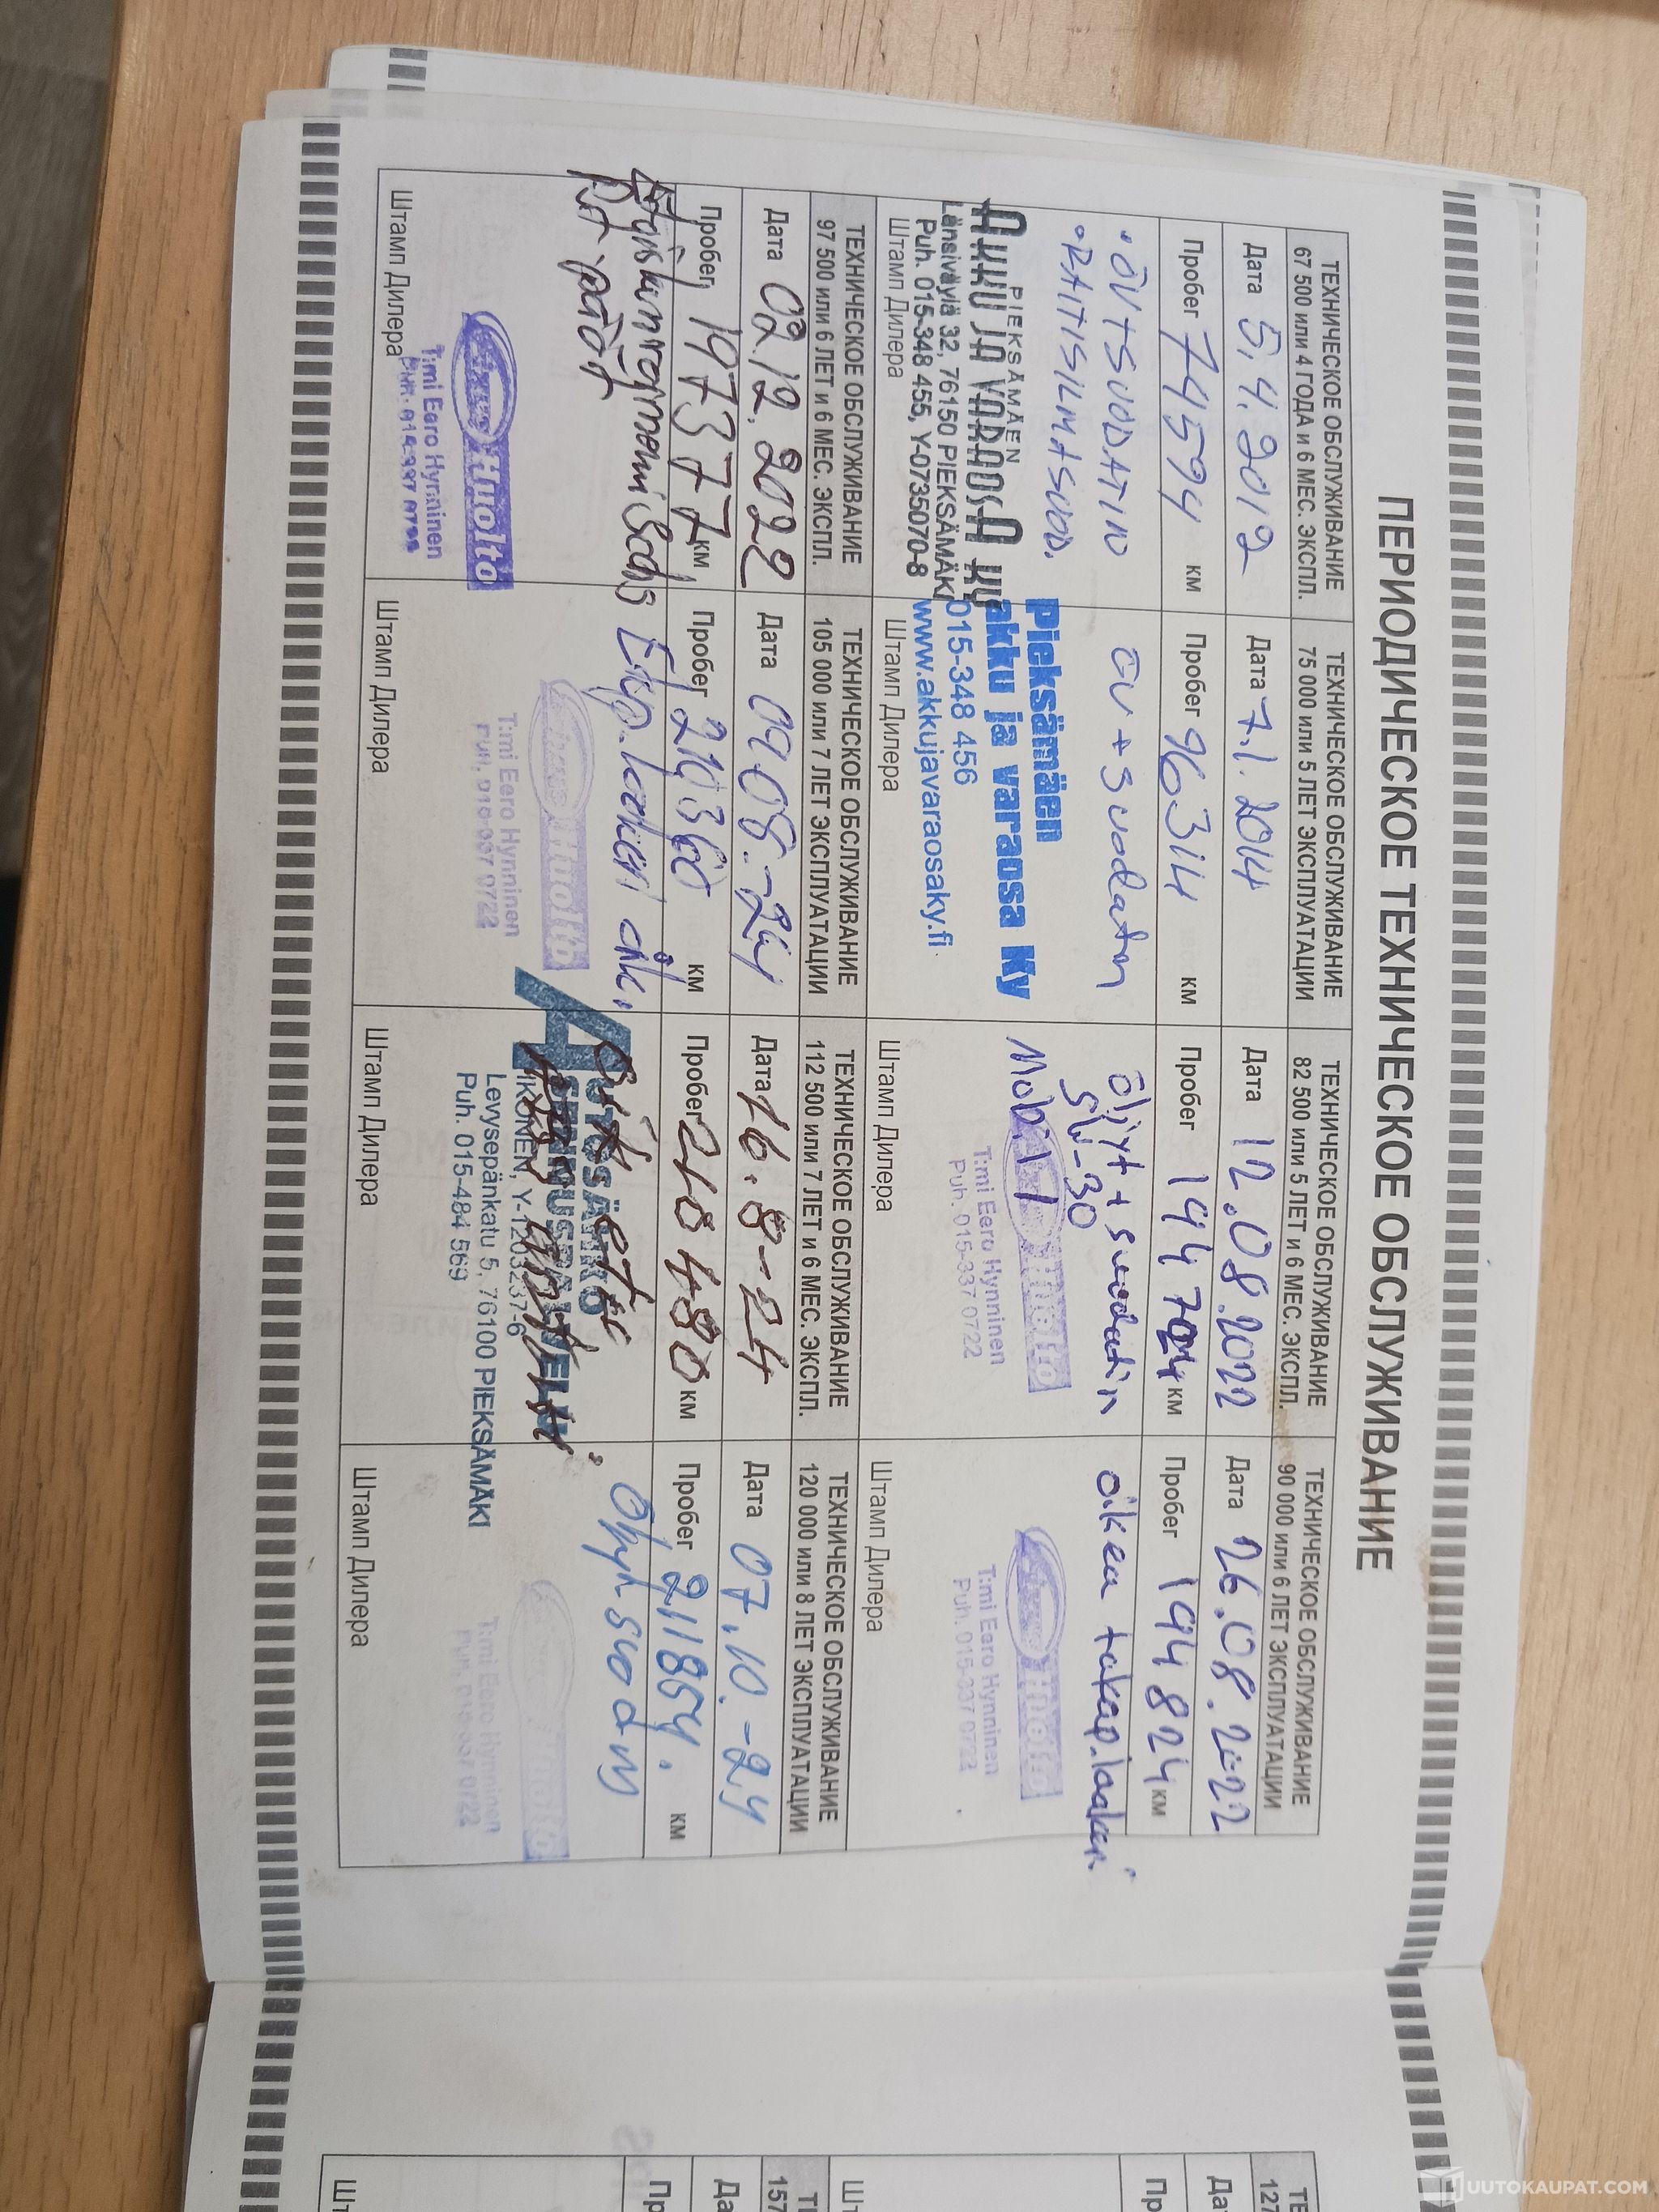 ПЕРИОДИЧЕСКОЕ ТЕХНИЧЕСКОЕ ОБСЛУЖИВАНИЕ
ТЕХНИЧЕСКОЕ ОБСЛУЖИВАНИЕ
67 500 или 4 ГОДА и 6 МЕС. ЭКСПЛ.
Дата 5.4.2012
Пробег 74594 км
• ÖV+SUODATIN
• RAITISILMASUOD.
PIEKSÄMÄEN
AKKU JA VARAOSA KY
Länsiväylä 32, 76150 PIEKSÄMÄKI
Puh. 015-348 455, Y-0735070-8
Штамп Дилера
ТЕХНИЧЕСКОЕ ОБСЛУЖИВАНИЕ
75 000 или 5 ЛЕТ ЭКСПЛУАТАЦИИ
Дата 7.1.2014
Пробег 96314 км
öv + suodatin
Pieksämäen
akku ja varaosa Ky
015-348 456
www.akkujavaraosaky.fi
Штамп Дилера
ТЕХНИЧЕСКОЕ ОБСЛУЖИВАНИЕ
82 500 или 5 ЛЕТ и 6 МЕС. ЭКСПЛ.
Дата 12.08.2022
Пробег 194704 км
öljyt + suodatin
5w-30
Mobil 1
Huolto
T:mi Eero Hynninen
Puh. 015-337 0722
Штамп Дилера
ТЕХНИЧЕСКОЕ ОБСЛУЖИВАНИЕ
90 000 или 6 ЛЕТ ЭКСПЛУАТАЦИИ
Дата 26.08.2022
Пробег 194824 км
oikea takap.laakeri
Huolto
T:mi Eero Hynninen
Puh. 015-337 0722
Штамп Дилера
ТЕХНИЧЕСКОЕ ОБСЛУЖИВАНИЕ
97 500 или 6 ЛЕТ и 6 МЕС. ЭКСПЛ.
Дата 02.12.2022
Пробег 197377 км
päät
Huolto
T:mi Eero Hynninen
Штамп Дилера
ТЕХНИЧЕСКОЕ ОБСЛУЖИВАНИЕ
105 000 или 7 ЛЕТ ЭКСПЛУАТАЦИИ
Дата 09.08.-24
Пробег 210360 км
Etup.laakeri
Huolto
T:mi Eero Hynninen
Puh. 015-337 0722
Штамп Дилера
ТЕХНИЧЕСКОЕ ОБСЛУЖИВАНИЕ
112 500 или 7 ЛЕТ и 6 МЕС. ЭКСПЛ.
Дата 16.8-24
Пробег 210480 км
AUTOSÄHKÖ
IKONEN, Y-1203237-6
Levysepänkatu 5, 76100 PIEKSÄMÄKI
Puh. 015-484 569
Штамп Дилера
ТЕХНИЧЕСКОЕ ОБСЛУЖИВАНИЕ
120 000 или 8 ЛЕТ ЭКСПЛУАТАЦИИ
Дата 07.10.-24
Пробег 211854. км
Huolto
T:mi Eero Hynninen
Puh. 015-337 0722
Штамп Дилера
ТЕ
127
Да
Пр
Шт
ТЕ
157
Да
Пр
Шт
UUTOKAUPAT.COM